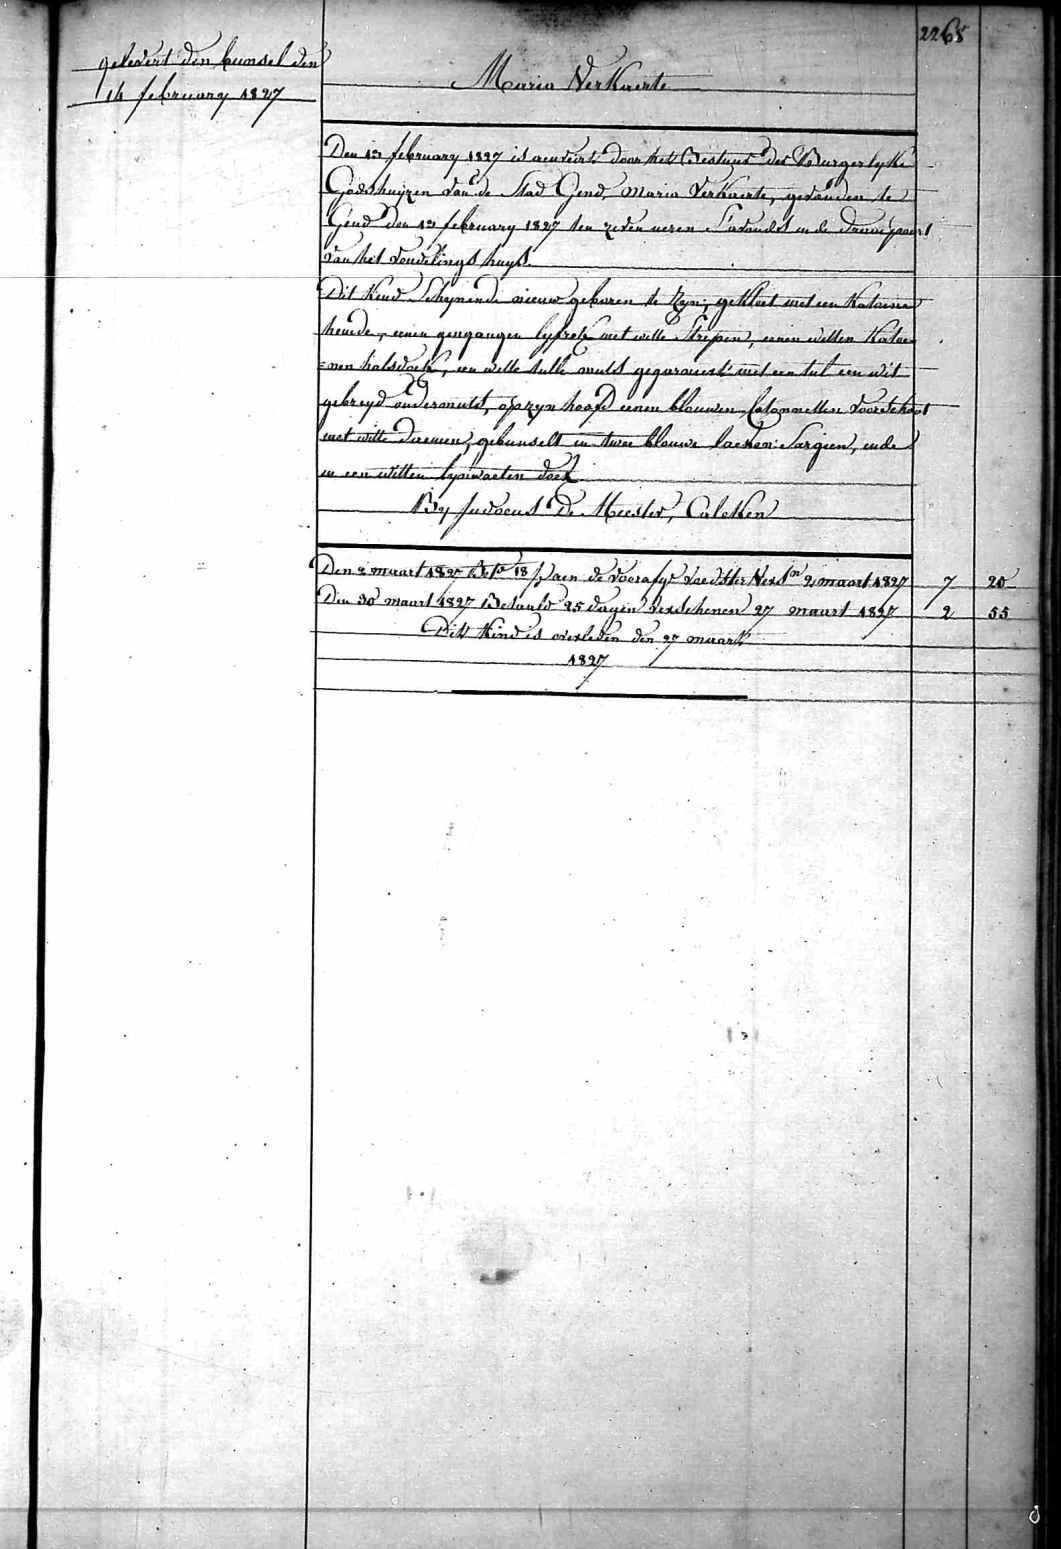 2268
gelevert den bunsel den
14 february 1827
Maria Verkaerte
Den 13 february 1827 is aenveirt door het Bestuur der Burgerlyke
Godshuyzen van de Stad Gend, Maria Verkaerte, gevonden te
Gend den 13 february 1827 ten zeven ueren S'avonds in de
van het vondelings huys.
Dit Kind Schynende nieuw geboren te Zyn, gekleet met een Katoene
hemde, eenen lyfrok met witte Strepen, eenen witten Katoe
=nen halsdoek, een witte tulle muts gegarneert met een tul een wit
gebreyd ondermuts, op zyn hoofd eenen blauwen Catonnetten Voorschoot
met witte, gebunselt in twee blauwe laeken Sargien, ende
in een witten lynwaeten doek
By Judocus De Meester, Calcken
Den 2 maart 1827 18 aen de voorafge Versn 2 maart 1827 7 20
Den 30 maart 1827 Betaald 25 dagen Verschenen 27 maart 1827 2 55
Dit Kind is overleden den 27 maart
1827